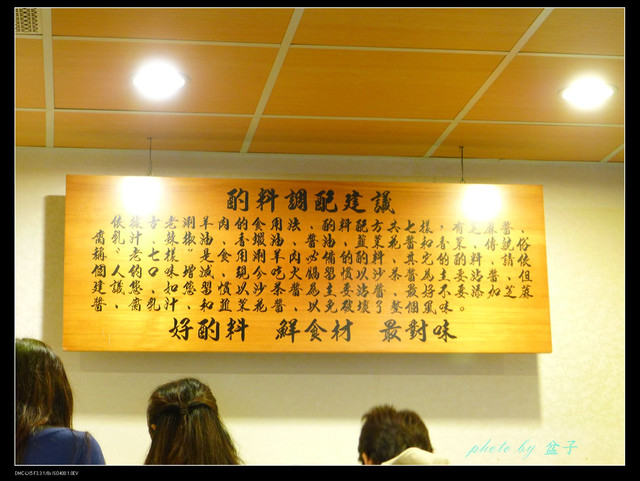 酌料調配建議
依據古老涮羊肉的食用法、酌料配方共七樣，有芝麻醬、
腐乳汁、辣椒油、香蝦油、醬油、韮菜花醬和香菜，傳說俗
稱〝老七樣〞是食用涮羊肉必備的酌料，其完的酌料，請依
個人的口味增減，現今吃火鍋習慣以沙茶醬為主要沾醬，但
建議您，如您習慣以沙茶醬為主要沾醬，最好不要添加芝蔴
醬、腐乳汁、和韮菜花醬，以免破壞了整個風味。
好酌料 鮮食材 最對味
photo by 盆子